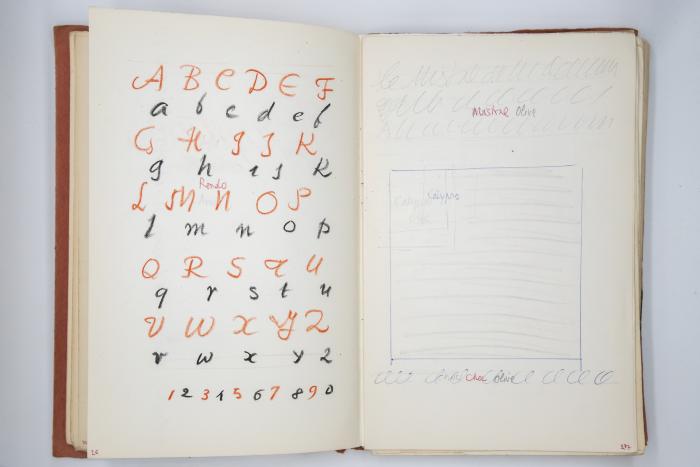 A B C D E F
a b c d e f
G H I J K
g h i j k
Rondo
L M N O P
l m n o p
Q R S T U
q r s t u
V W X Y Z
v w x y z
1 2 3 4 5 6 7 8 9 0
26
Mistral Olive
Calypso
Choc Olive